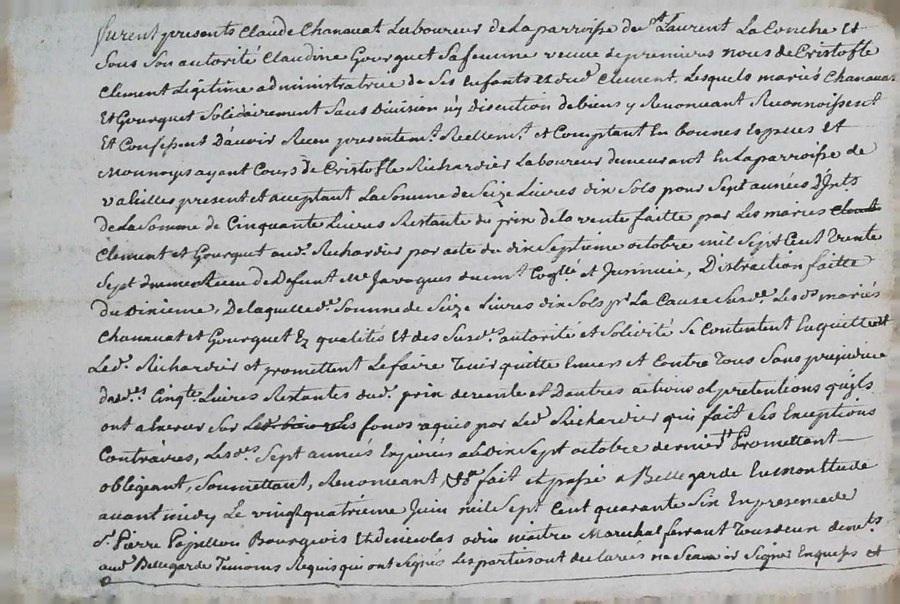 furent presents Claude Chanauat Laboureur de La parroisse de st Laurent La Conche Et
Sous Son autorité Claudine Gourguet Sa femme veuve de premiers nous de Cristofle
Clement Legitime administratrice de Ses Enfants et dud. Clement, Lesquels mariés Chanauat
Et Gourguet Solidairement Sans Division ny discution de biens y Renonceant Reconnoissent
Et Confessent D'auoir Receu presentemt. Reellemt. et Comptant En bonnes Especes Et
Monnoys ayant Cours de Cristofle Richardier Laboureur demeurant En La parroisse de
valeilles present et aceptant La Somme de Seize Liures dix Sols pour Sept années D'Jnts.
de La Somme de Cinquante Liures Restante du prix de la vente faitte par Les mariés
Clement et Gourguet aud. Richardier par acte du dix Septieme octobre mil Sept Cent Trente
Sept deffunt Me Javogues et , Distraction faitte
du dixieme, De laquelle de. Somme de Seize Liures dix Sols pr. La Cause Susde. Les ds. mariés
Chanauat et Gourguet Ez qualités Et des Susds. autorité et Solidité Se Contentent En quittent
Led. Richardier et promettent Le faire Tenir quitte Enuers et Contre Tous Sans prejudice
desd. Cinqte. Liures Restantes dud. prix de vente et D'autres actions et pretentions quils
ont a Exercer Sur les fonds aquis par Led. Richardier qui fait Ses Exceptions
Contraires, Lesds. Sept années Expirées a Le Dix Sept octobre dernier, Promettant
obligeant, Soumettant, Renonceant, fait et passé a Bellegarde En
auant midy Le vingt quatrieme Juin mil Sept Cent quarante Six En presence de
Sr. Pierre Papillon Bourgeois Et de nicolas odin maitre Marechal ferrant Tous deux
aud. Bellegarde Temoins Requis qui ont Signés Les parties ont declarés ne Scauoir Signer Enquises et